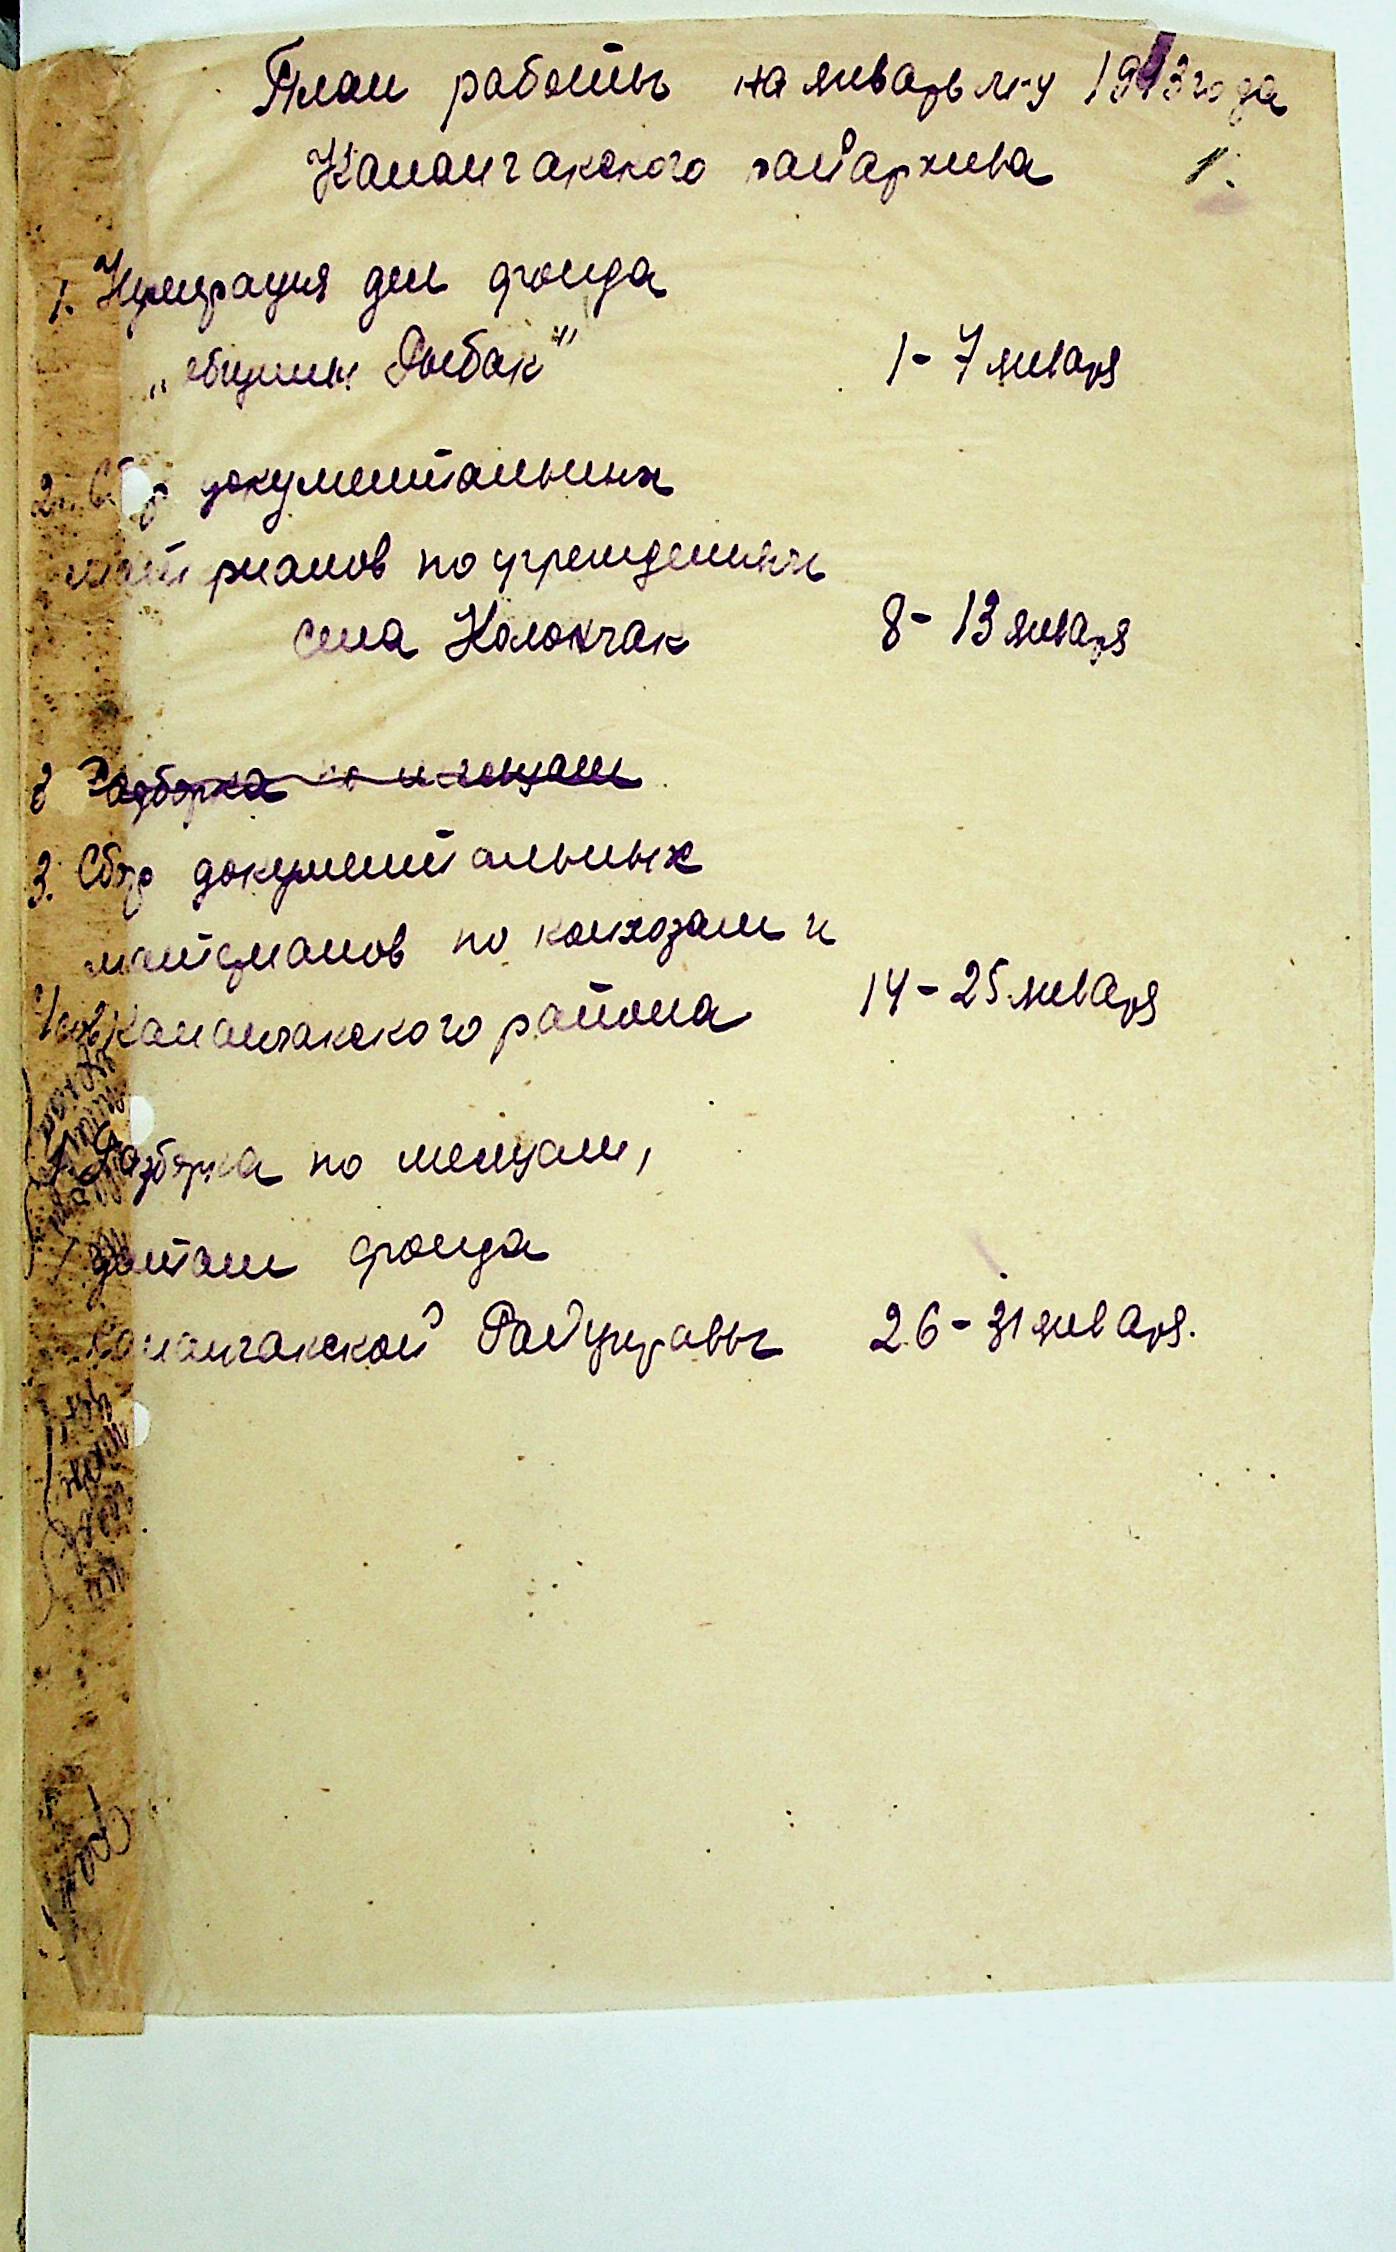 План работы на январь м-ц 1943 года
Каланчакского райархива
1.
1. Нумерация дел фонда
„общины Рыбак"
1 - 7 января
2. Сбор документальных
материалов по учреждениям
села Каланчак
8 - 13 января
Разборка по месяцам
3. Сбор документальных
материалов по колхозам и
Каланчакского района
14 - 25 января
Разборка по месяцам,
датам фонда
Каланчакской Райуправы
26 - 31 января.